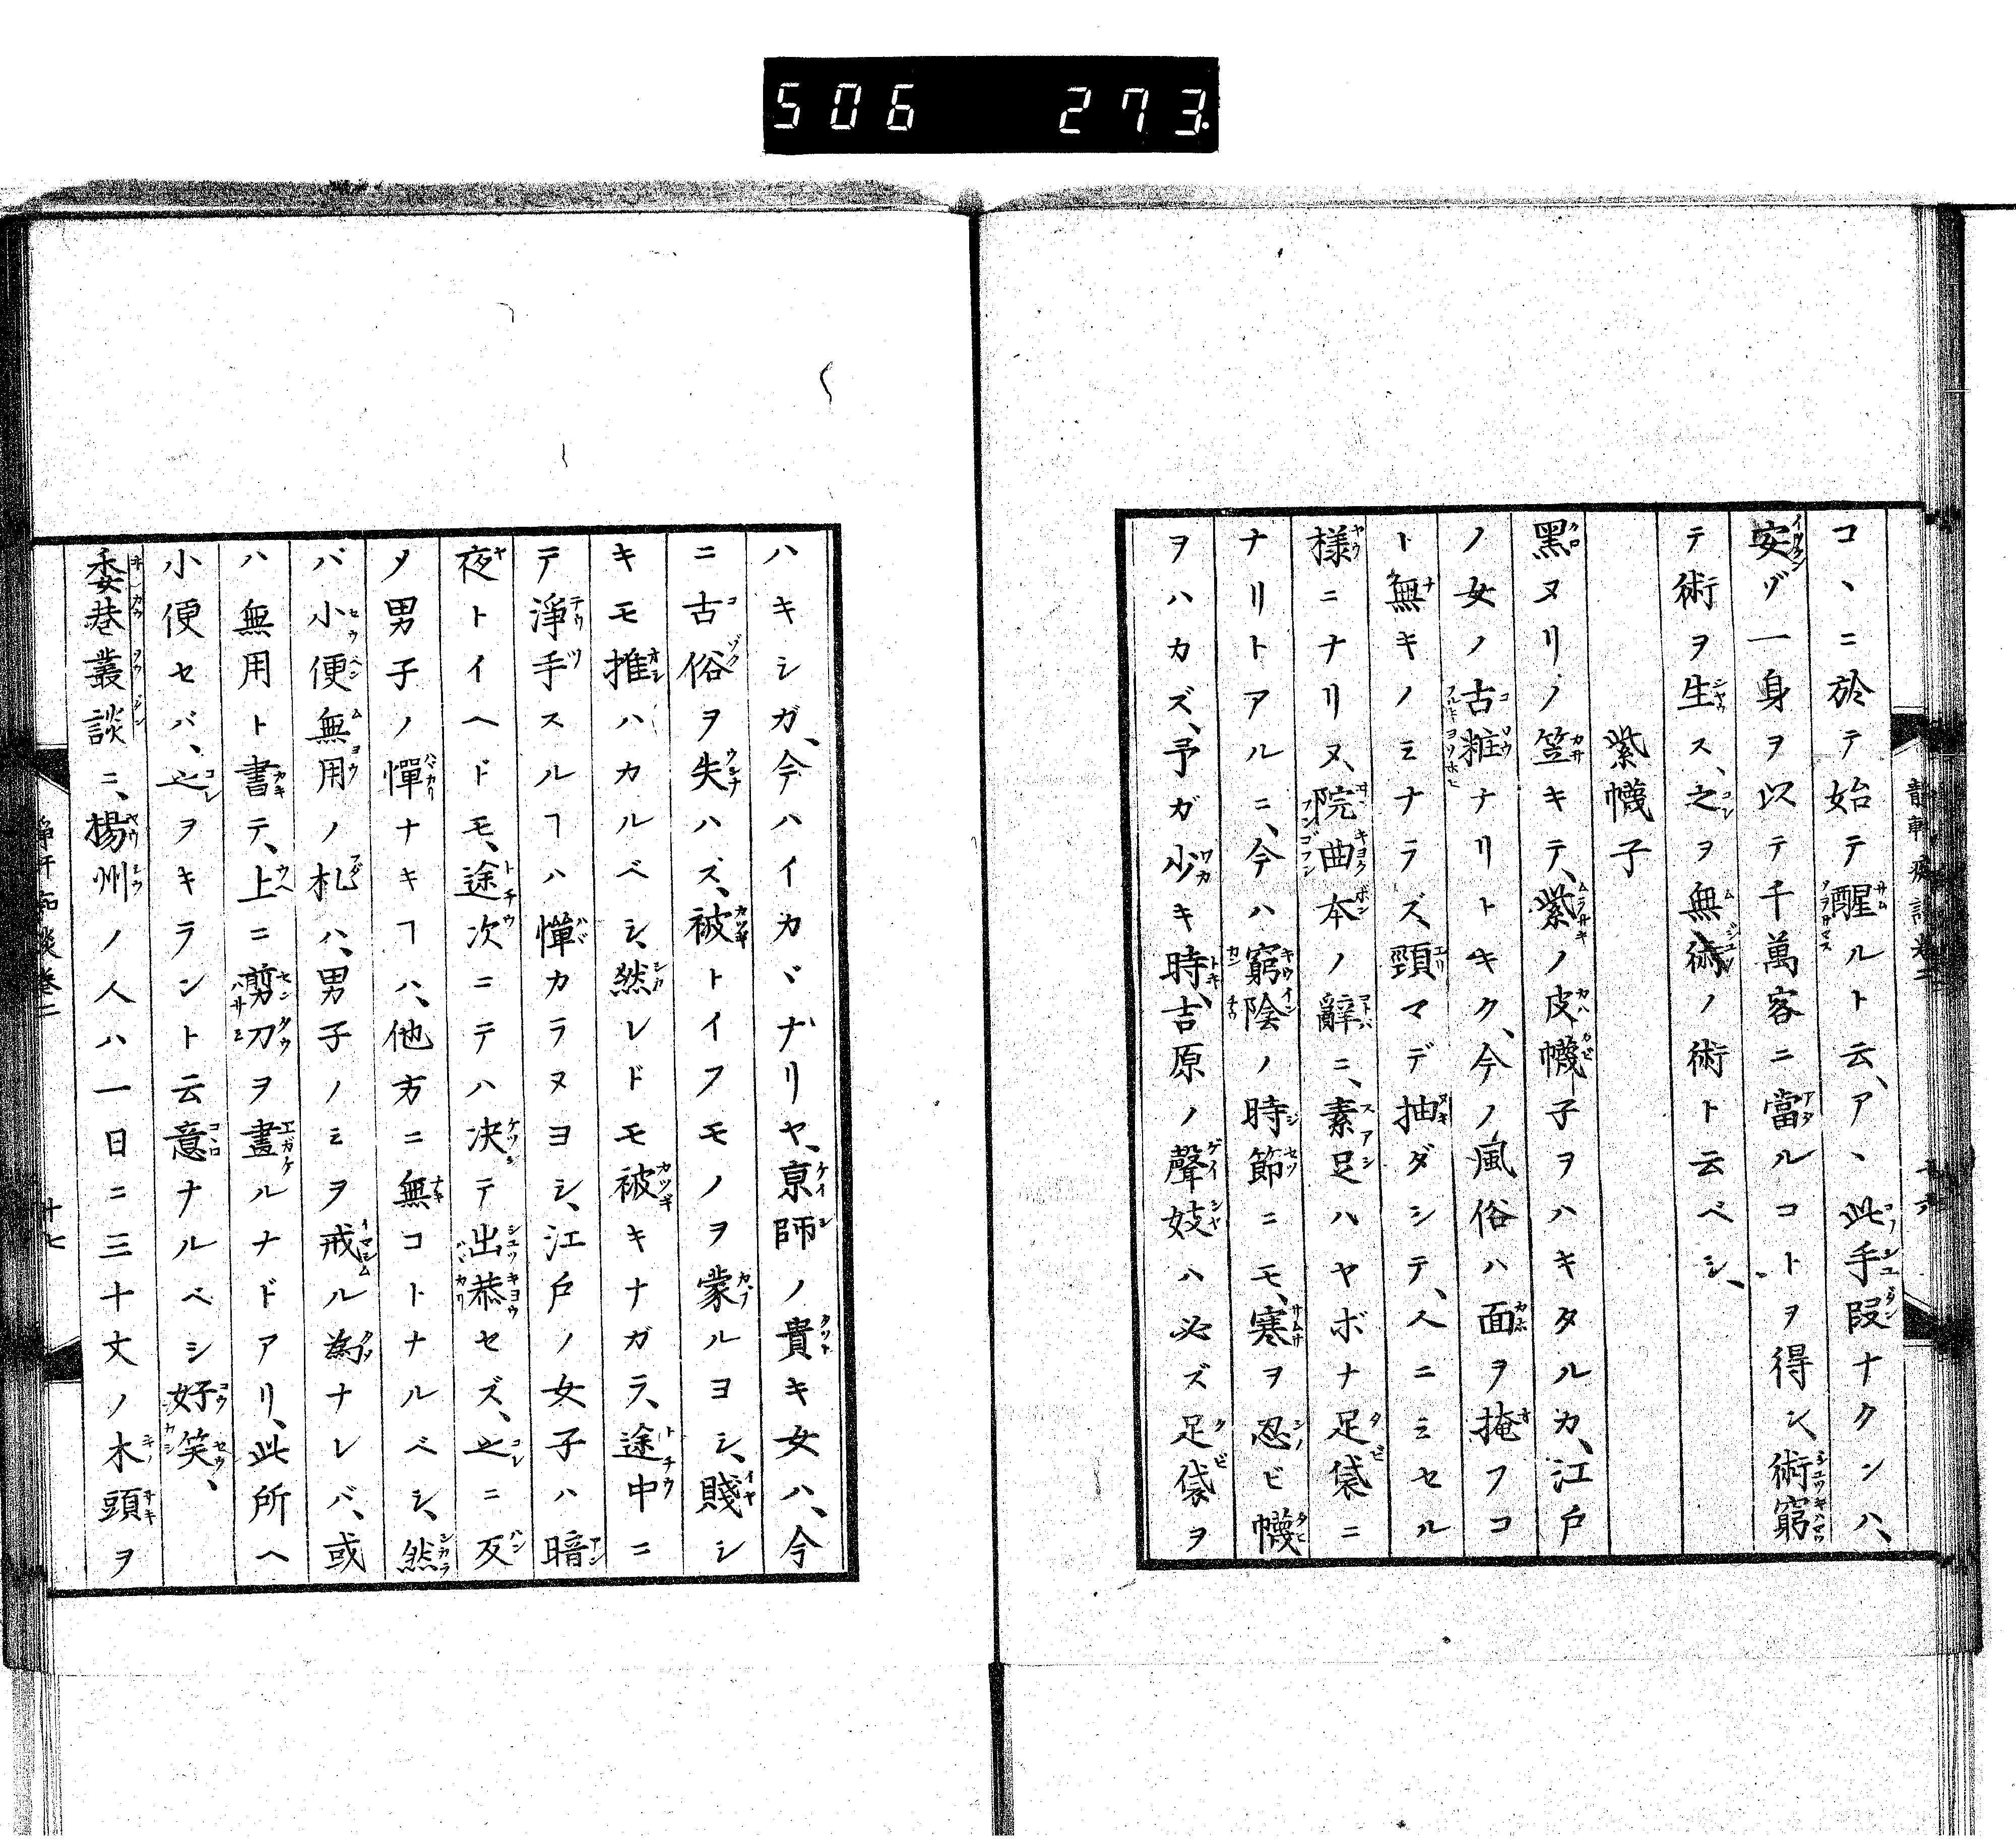 506 273
コヽニ於テ始テ醒ルト云、アヽ此手段ナクンハ、
安ヅ一身ヲ以テ千萬客ニ當ルコトヲ得ン、術窮
テ術ヲ生ス、之ヲ無術ノ術ト云ベシ、
紫幭子
黑ヌリノ笠キテ、紫ノ皮幭子ヲハキタルカ、江戸
ノ女ノ古粧ナリトキク、今ノ風俗ハ面ヲ掩フコ
ト無キノミナラズ、頸マデ抽ダシテ、人ニミセル
様ニナリヌ、院曲本ノ辭ニ、素足ハヤボナ足袋ニ
ナリトアルニ、今ハ窮陰ノ時節ニモ、寒ヲ忍ビ幭
ヲハカズ、予ガ少キ時、吉原ノ聲妓ハ必ズ足袋ヲ
ハキシガ、今ハイカヾナリヤ、亰師ノ貴キ女ハ、今
ニ古俗ヲ失ハズ、被トイフモノヲ蒙ルヨシ、賤シ
キモ推ハカルベシ、然レドモ被キナガラ、途中ニ
テ淨手スルヿハ憚カラヌヨシ、江戸ノ女子ハ暗
夜トイヘドモ、途次ニテハ决テ出恭セズ、之ニ反
メ男子ノ憚ナキヿハ、他方ニ無コトナルベシ、然
バ小便無用ノ札ハ、男子ノミヲ戒ル為ナレバ、或
ハ無用ト書テ、上ニ剪刀ヲ畫ルナドアリ、此所ヘ
小便セバ、之ヲキラント云意ナルベシ好笑、
委巷叢談ニ、楊州ノ人ハ一日ニ三十丈ノ木頭ヲ
十七